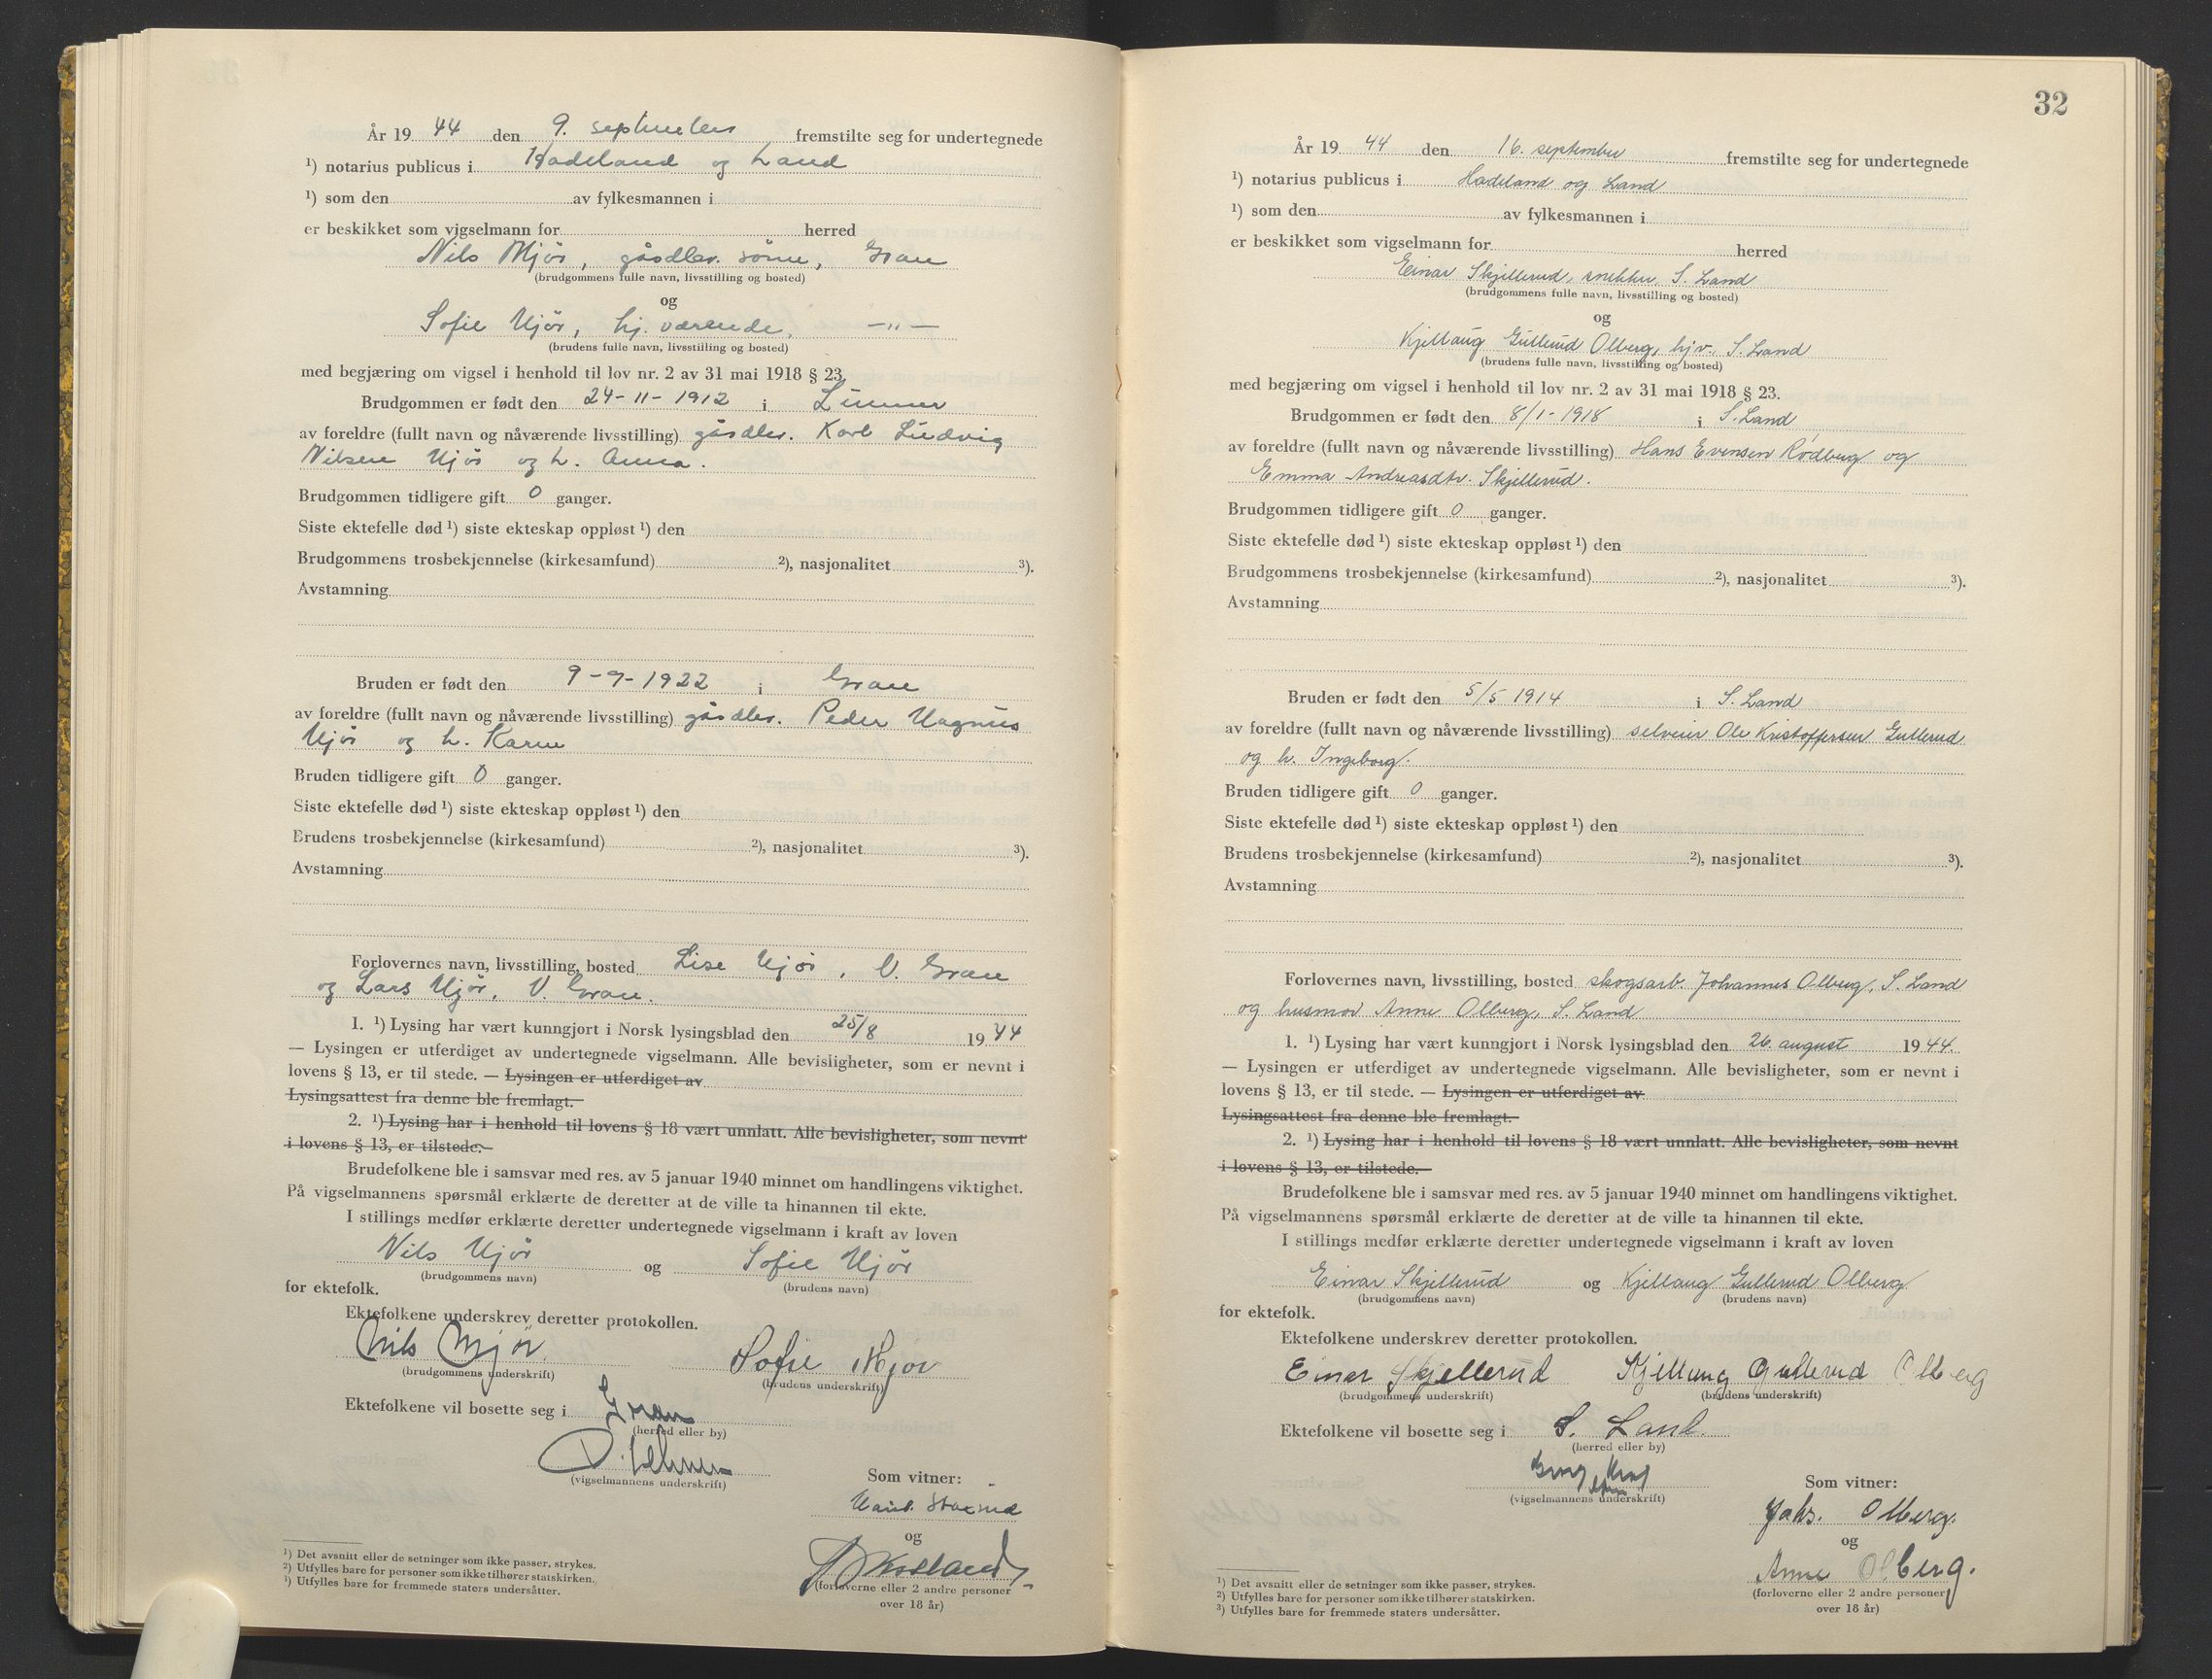 År 19 44 den 9. september fremstilte seg for undertegnede
¹) notarius publicus i Hadeland og Land
¹) som den av fylkesmannen i
er beskikket som vigselmann for herred
Nils Mjør, gårdbr. sønn, Gran
(brudgommens fulle navn, livsstilling og bosted)
og
Sofie Mjør, hj. værende, —"—
(brudens fulle navn, livsstilling og bosted)
med begjæring om vigsel i henhold til lov nr. 2 av 31 mai 1918 § 23.
Brudgommen er født den 24-11-1912 i Lunner
av foreldre (fullt navn og nåværende livsstilling) gårdbr. Karl Ludvig
Nilsen Mjør og h. Anna.
Brudgommen tidligere gift 0 ganger.
Siste ektefelle død ¹) siste ekteskap oppløst ¹) den
Brudgommens trosbekjennelse (kirkesamfund) ²), nasjonalitet ³).
Avstamning
Bruden er født den 9-9-1922 i Gran
av foreldre (fullt navn og nåværende livsstilling) gårdbr. Peder Magnus
Mjør og h. Karen
Bruden tidligere gift 0 ganger.
Siste ektefelle død ¹) siste ekteskap oppløst ¹) den
Brudens trosbekjennelse (kirkesamfund) ²), nasjonalitet ³).
Avstamning
Forlovernes navn, livsstilling, bosted Lise Mjør, V. Gran
og Lars Mjør, V. Gran.
1. ¹) Lysing har vært kunngjort i Norsk lysingsblad den 25/8 1944
— Lysingen er utferdiget av undertegnede vigselmann. Alle bevisligheter, som er nevnt i
lovens § 13, er til stede. — Lysingen er utferdiget av
Lysingsattest fra denne ble fremlagt.
2. ¹) Lysing har i henhold til lovens § 18 vært unnlatt. Alle bevisligheter, som nevnt
i lovens § 13, er tilstede.
Brudefolkene ble i samsvar med res. av 5 januar 1940 minnet om handlingens viktighet.
På vigselmannens spørsmål erklærte de deretter at de ville ta hinannen til ekte.
I stillings medfør erklærte deretter undertegnede vigselmann i kraft av loven
Nils Mjør og Sofie Mjør
(brudgommens navn) (brudens navn)
for ektefolk.
Ektefolkene underskrev deretter protokollen.
Nils Mjør. Sofie Mjør
(brudgommens underskrift) (brudens underskrift)
Ektefolkene vil bosette seg i Gran
(herred eller by)
(vigselmannens underskrift)
Som vitner:
og
(forloverne eller 2 andre personer
over 18 år)
¹) Det avsnitt eller de setninger som ikke passer, strykes.
²) Utfylles bare for personer som ikke tilhører statskirken.
³) Utfylles bare for fremmede staters undersåtter.
32
År 19 44 den 16. september fremstilte seg for undertegnede
¹) notarius publicus i Hadeland og Land
¹) som den av fylkesmannen i
er beskikket som vigselmann for herred
Einar Skjellerud, snekker, S. Land
(brudgommens fulle navn, livsstilling og bosted)
og
Kjellaug Gullerud Olberg, hjv., S. Land
(brudens fulle navn, livsstilling og bosted)
med begjæring om vigsel i henhold til lov nr. 2 av 31 mai 1918 § 23.
Brudgommen er født den 8/1-1918 i S. Land
av foreldre (fullt navn og nåværende livsstilling) Hans Evensen Rødberg og
Emma Andreasdtr. Skjellerud.
Brudgommen tidligere gift 0 ganger.
Siste ektefelle død ¹) siste ekteskap oppløst ¹) den
Brudgommens trosbekjennelse (kirkesamfund) ²), nasjonalitet ³).
Avstamning
Bruden er født den 5/5 1914 i S. Land
av foreldre (fullt navn og nåværende livsstilling) selveier Ole Kristoffersen Gullerud
og h. Ingeborg.
Bruden tidligere gift 0 ganger.
Siste ektefelle død ¹) siste ekteskap oppløst ¹) den
Brudens trosbekjennelse (kirkesamfund) ²), nasjonalitet ³).
Avstamning
Forlovernes navn, livsstilling, bosted skogsarb. Johannes Olberg, S. Land
og husmor Anne Olberg, S. Land
1. ¹) Lysing har vært kunngjort i Norsk lysingsblad den 26. august 1944.
— Lysingen er utferdiget av undertegnede vigselmann. Alle bevisligheter, som er nevnt i
lovens § 13, er til stede. — Lysingen er utferdiget av
Lysingsattest fra denne ble fremlagt.
2. ¹) Lysing har i henhold til lovens § 18 vært unnlatt. Alle bevisligheter, som nevnt
i lovens § 13, er tilstede.
Brudefolkene ble i samsvar med res. av 5 januar 1940 minnet om handlingens viktighet.
På vigselmannens spørsmål erklærte de deretter at de ville ta hinannen til ekte.
I stillings medfør erklærte deretter undertegnede vigselmann i kraft av loven
Einar Skjellerud og Kjellaug Gullerud Olberg
(brudgommens navn) (brudens navn)
for ektefolk.
Ektefolkene underskrev deretter protokollen.
Einar Skjellerud Kjellaug Gullerud Olberg
(brudgommens underskrift) (brudens underskrift)
Ektefolkene vil bosette seg i S. Land.
(herred eller by)
(vigselmannens underskrift)
Som vitner:
Johs. Olberg.
og
Anne Olberg.
(forloverne eller 2 andre personer
over 18 år)
¹) Det avsnitt eller de setninger som ikke passer, strykes.
²) Utfylles bare for personer som ikke tilhører statskirken.
³) Utfylles bare for fremmede staters undersåtter.